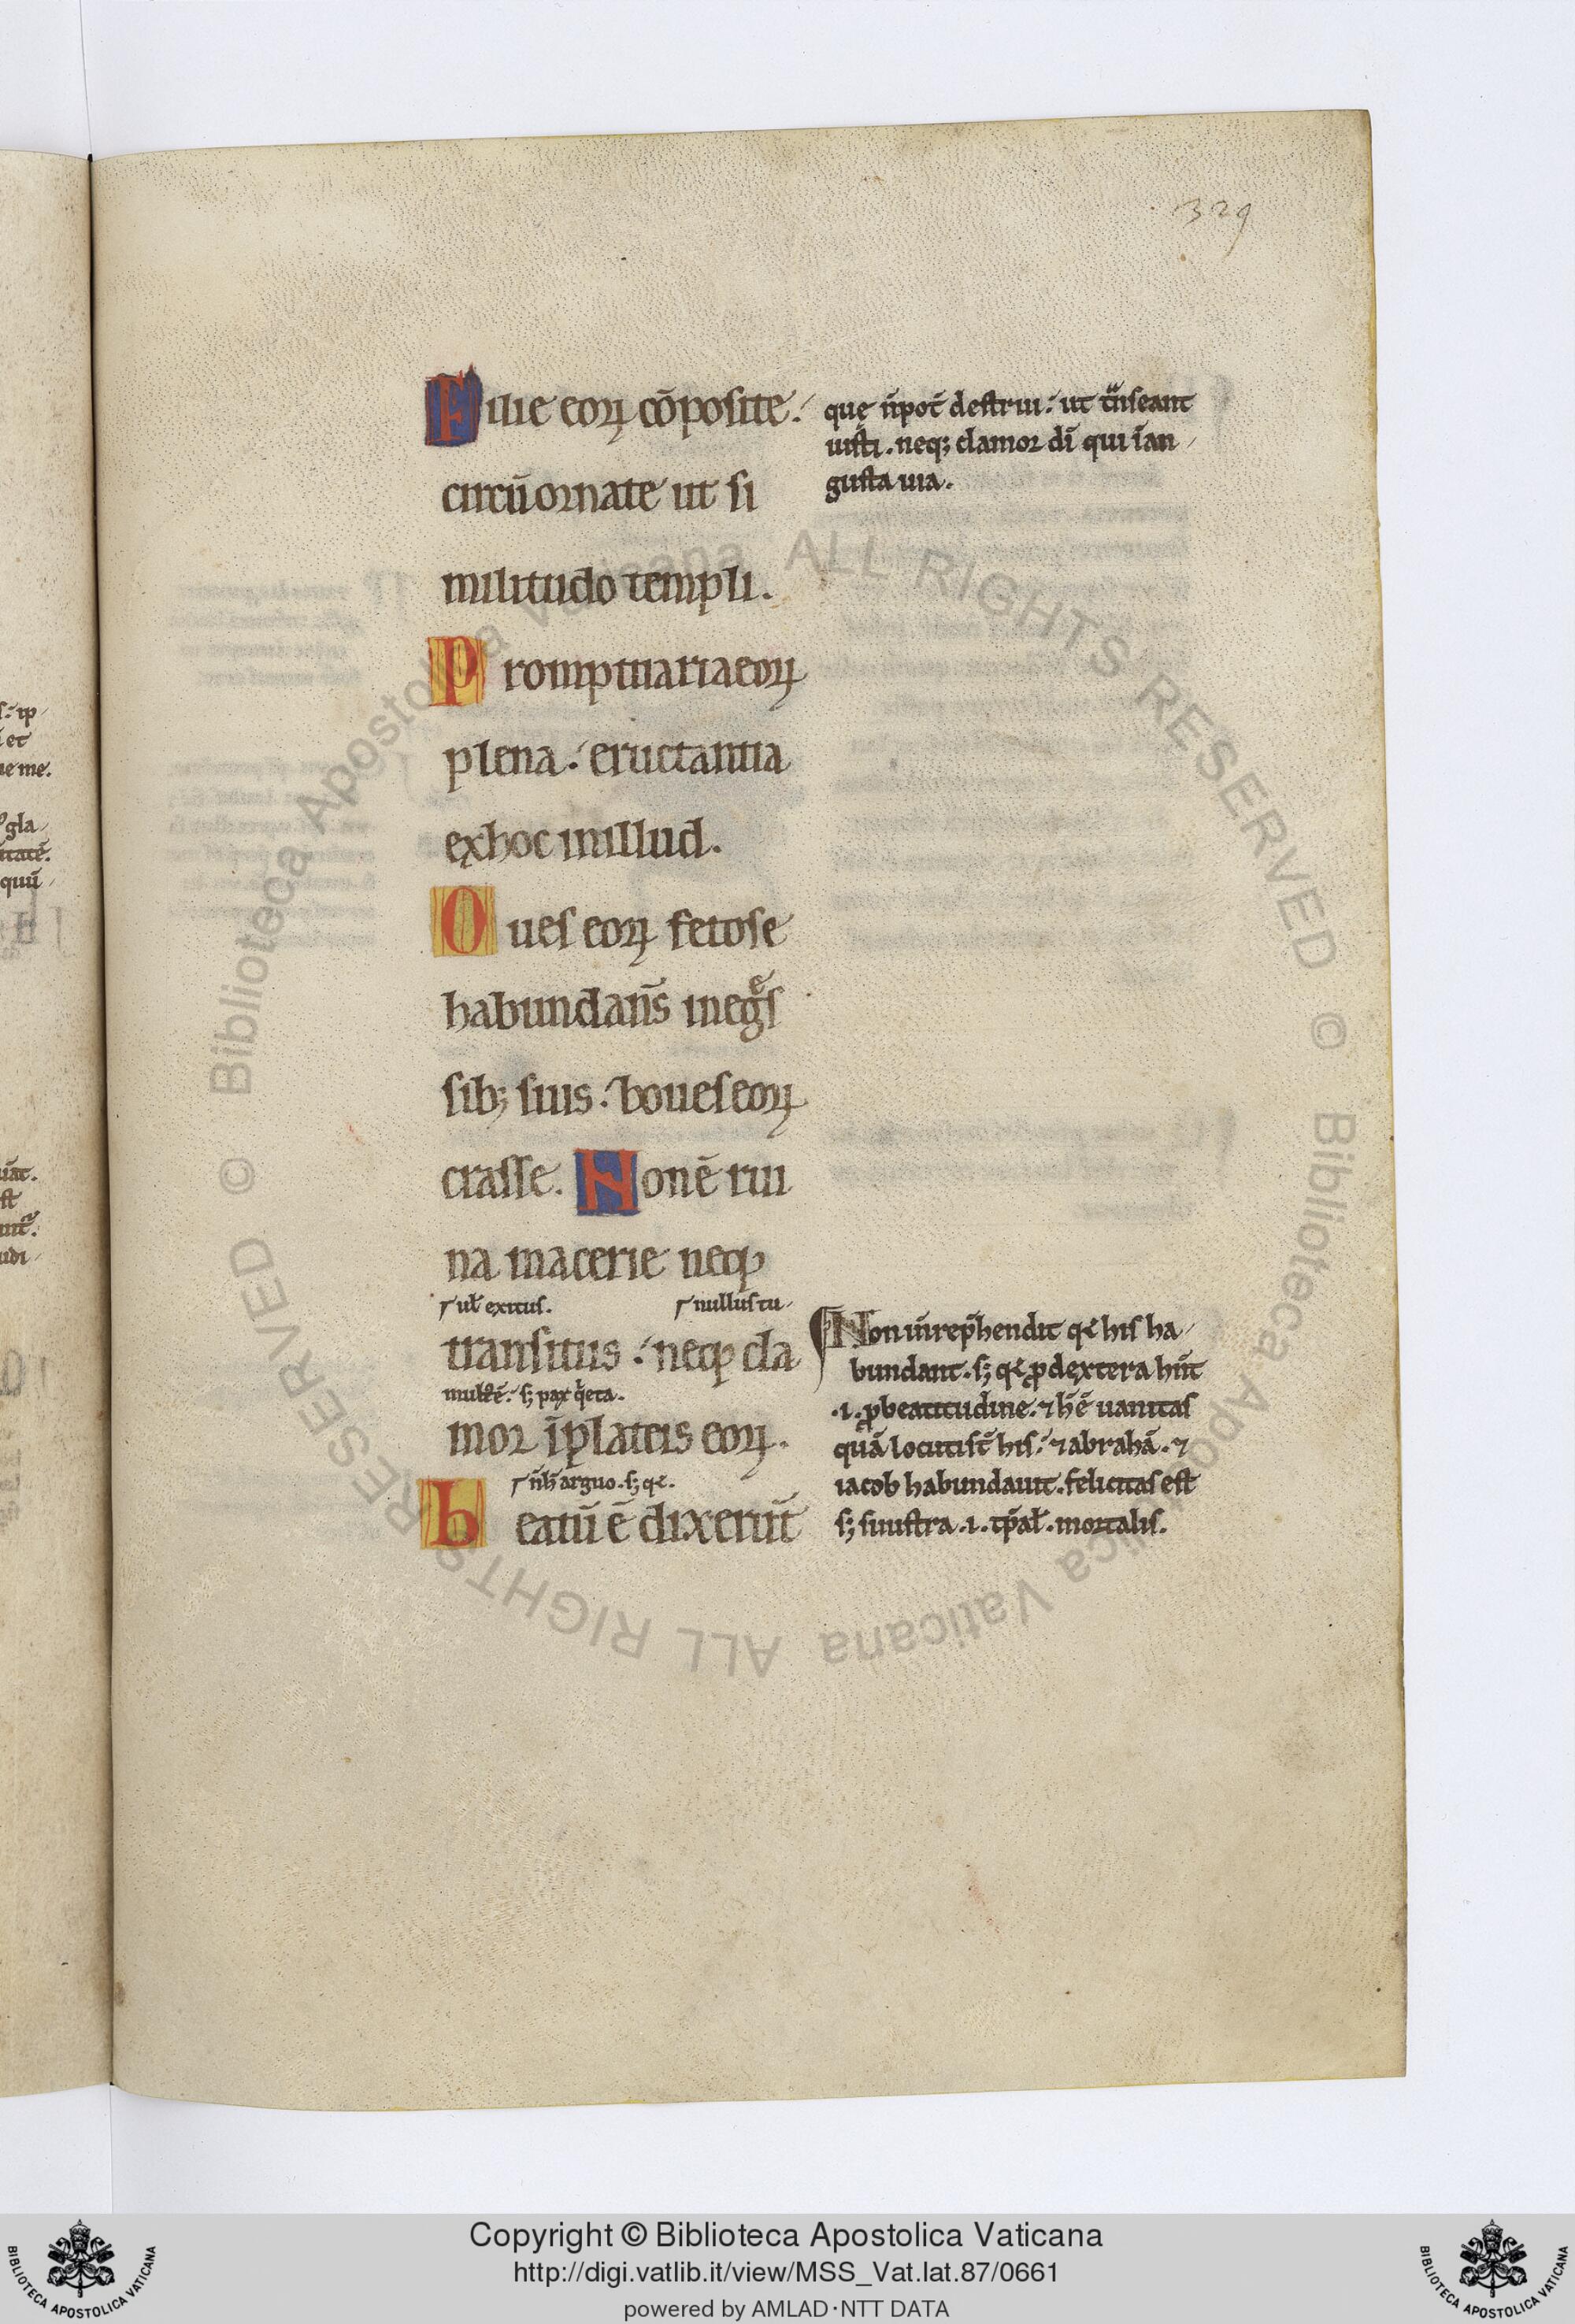 329
Filie eoꝝ cōposite.
circūornate ut si
militudo templi.
Promptuaria eoꝝ
plena. eructantia
ex hoc in illud.
Oues eoꝝ fetose
habundan̄s in egͤs
sibꝫ suis. boues eoꝝ
crasse. Non ē rui
na macerie neqꝫ
ul̄ exitus. nullus tu
transitus. neqꝫ cla
mult᷒ē. sꝫ pax q̇eta.
mor ī plateis eoꝝ.
n̄ h̄ arguo. sꝫ qꝫ.
beatū ē dixerūt
quę n̄ pot̄ destrui. ut t̄nseant
iusti. neqꝫ clamor dī qui ī an
gusta uia.
Non īrep̄hendit qꝫ his ha
bundant. sꝫ qꝫ ꝓ dextera hn̄t
.i. ꝓ beatitudine. ⁊ h̄ ē uanitas
quā locuti st̄ his. ⁊ abrahā. ⁊
iacob habundauit. felicitas est
sꝫ sinistra .i. tp̄al̄. mortalis.
s. ip
et
ue me.
gla
itatē.
quū
st
udi
© Biblioteca Apostolica Vaticana ALL RIGHTS RESERVED © Biblioteca Apostolica Vaticana ALL RIGHTS RESERVED
Copyright © Biblioteca Apostolica Vaticana
http://digi.vatlib.it/view/MSS_Vat.lat.87/0661
powered by AMLAD·NTT DATA
BIBLIOTECA APOSTOLICA VATICANA
BIBLIOTECA APOSTOLICA VATICANA